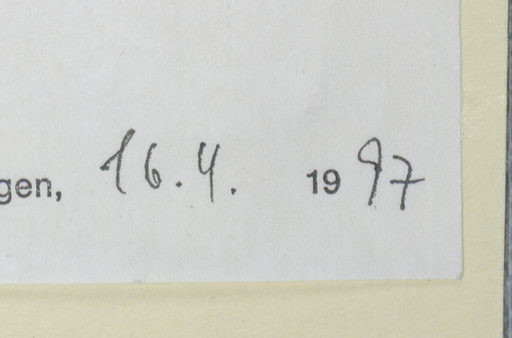 gen, 16.4. 1997